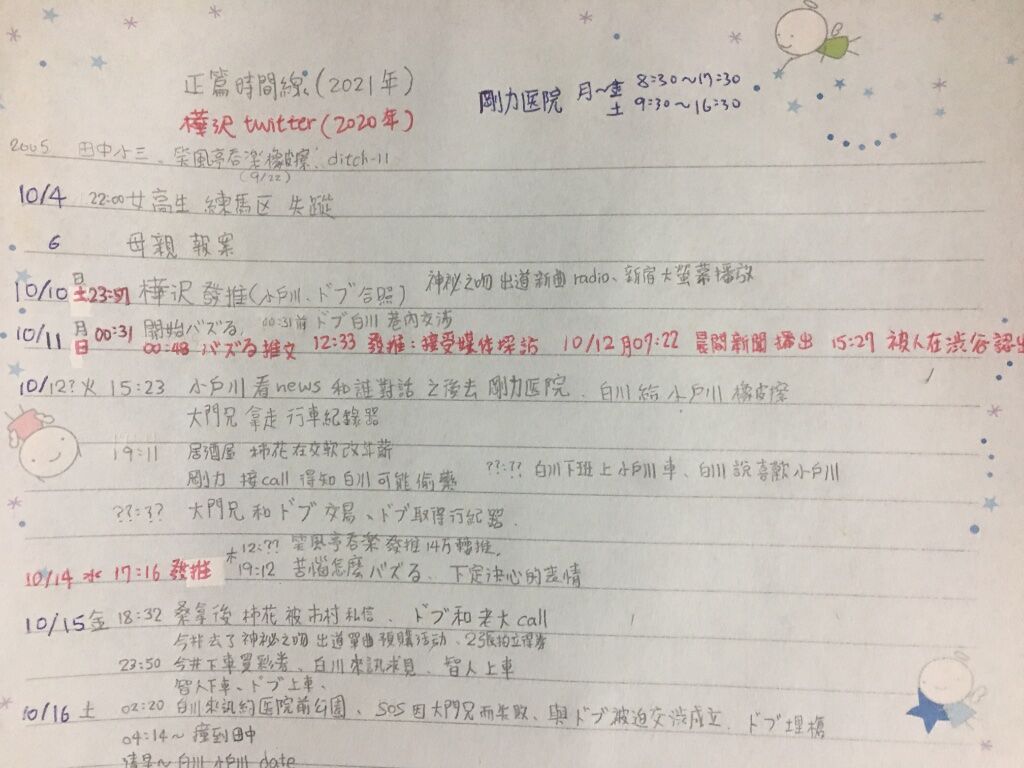 正篇時間線(2021年)
樺沢 twitter(2020年)
剛力医院 月~金 8:30~17:30
土 9:30~16:30
2005 田中小三、笑風亭呑楽橡皮擦、ditch-11
(9/22)
10/4 22:00 女高生 練馬区 失蹤
6 母親 報案
10/10 日 土 23:57 樺沢 發推(小戸川、ドブ合照) 神秘之吻 出道新曲 radio、新宿大螢幕播放
10/11 月 00:31 開始バズる, 00:31前 ドブ白川 巷內交涉
日 00:48 バズる推文 12:33 發推:接受媒体採訪 10/12月07:22 晨間新聞 播出 15:27 被人在渋谷認出
10/12? 火 15:23 小戸川 看news 和誰對話 之後去 剛力医院、白川給小戸川 橡皮擦
大門兄 拿走 行車紀錄器
19:11 居酒屋 柿花在交軟改年薪
剛力 接call 得知白川可能偷藥 ??:?? 白川下班上小戸川車、白川說喜歡小戸川
??:?? 大門兄 和ドブ交易、ドブ取得行紀器.
木 12:?? 笑風亭呑楽 發推14万轉推,
10/14 水 17:16 發推 19:12 苦惱怎麼バズる、下定決心的表情
10/15 金 18:32 桑拿後 柿花 被市村私信、ドブ和老大call
今井去了神秘之吻 出道單曲 預購活動、23張拍立得券
23:50 今井下車買彩券、白川來訊求見、智人上車
智人下車、ドブ上車、
10/16 土 02:20 白川來訊約医院前公園、SOS因大門兄而失敗、與ドブ被迫交涉成立、ドブ埋槍
04:14~ 撞到田中
清早~白川 小戸川 date